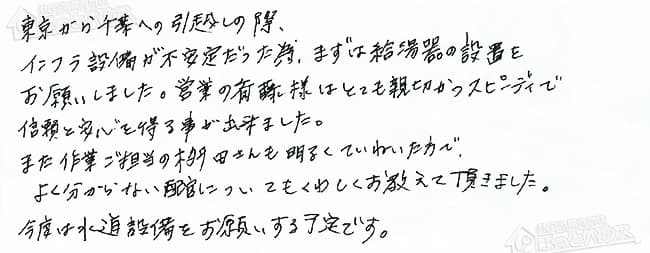 東京から千葉への引越しの際、
インフラ設備が不安定だった為、まずは給湯器の設置を
お願いしました。営業の斉藤様はとても親切かつスピーディで
信頼と安心を得る事が出来ました。
また作業ご担当の村田さんも明るくていねいた方で、
よく分からない配管についてもくわしくお教えて頂きました。
今度は水道設備をお願いする予定です。